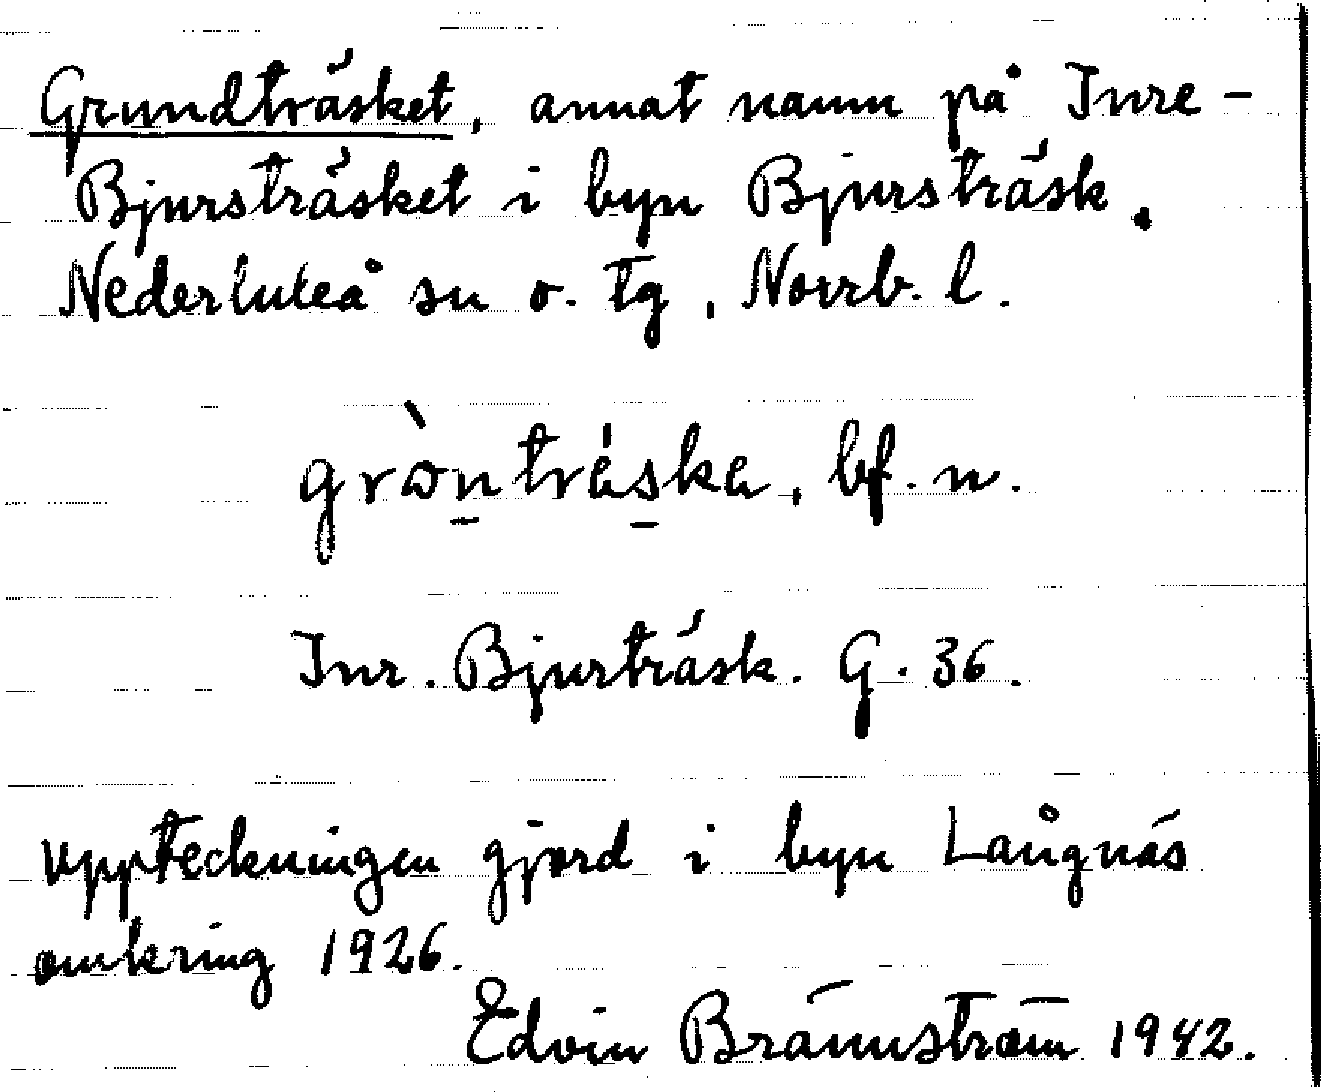 Grundträsket, annat namn på Inre-
Bjursträsket i byn Bjursträsk.
Nederluleå sn o. tg, Norrb. l.
gròn̠trás̠ka, bf. n.
Inr. Bjurträsk. G. 36.
Uppteckningen gjord i byn Långnäs
omkring 1926.
Edvin Brännström 1942.